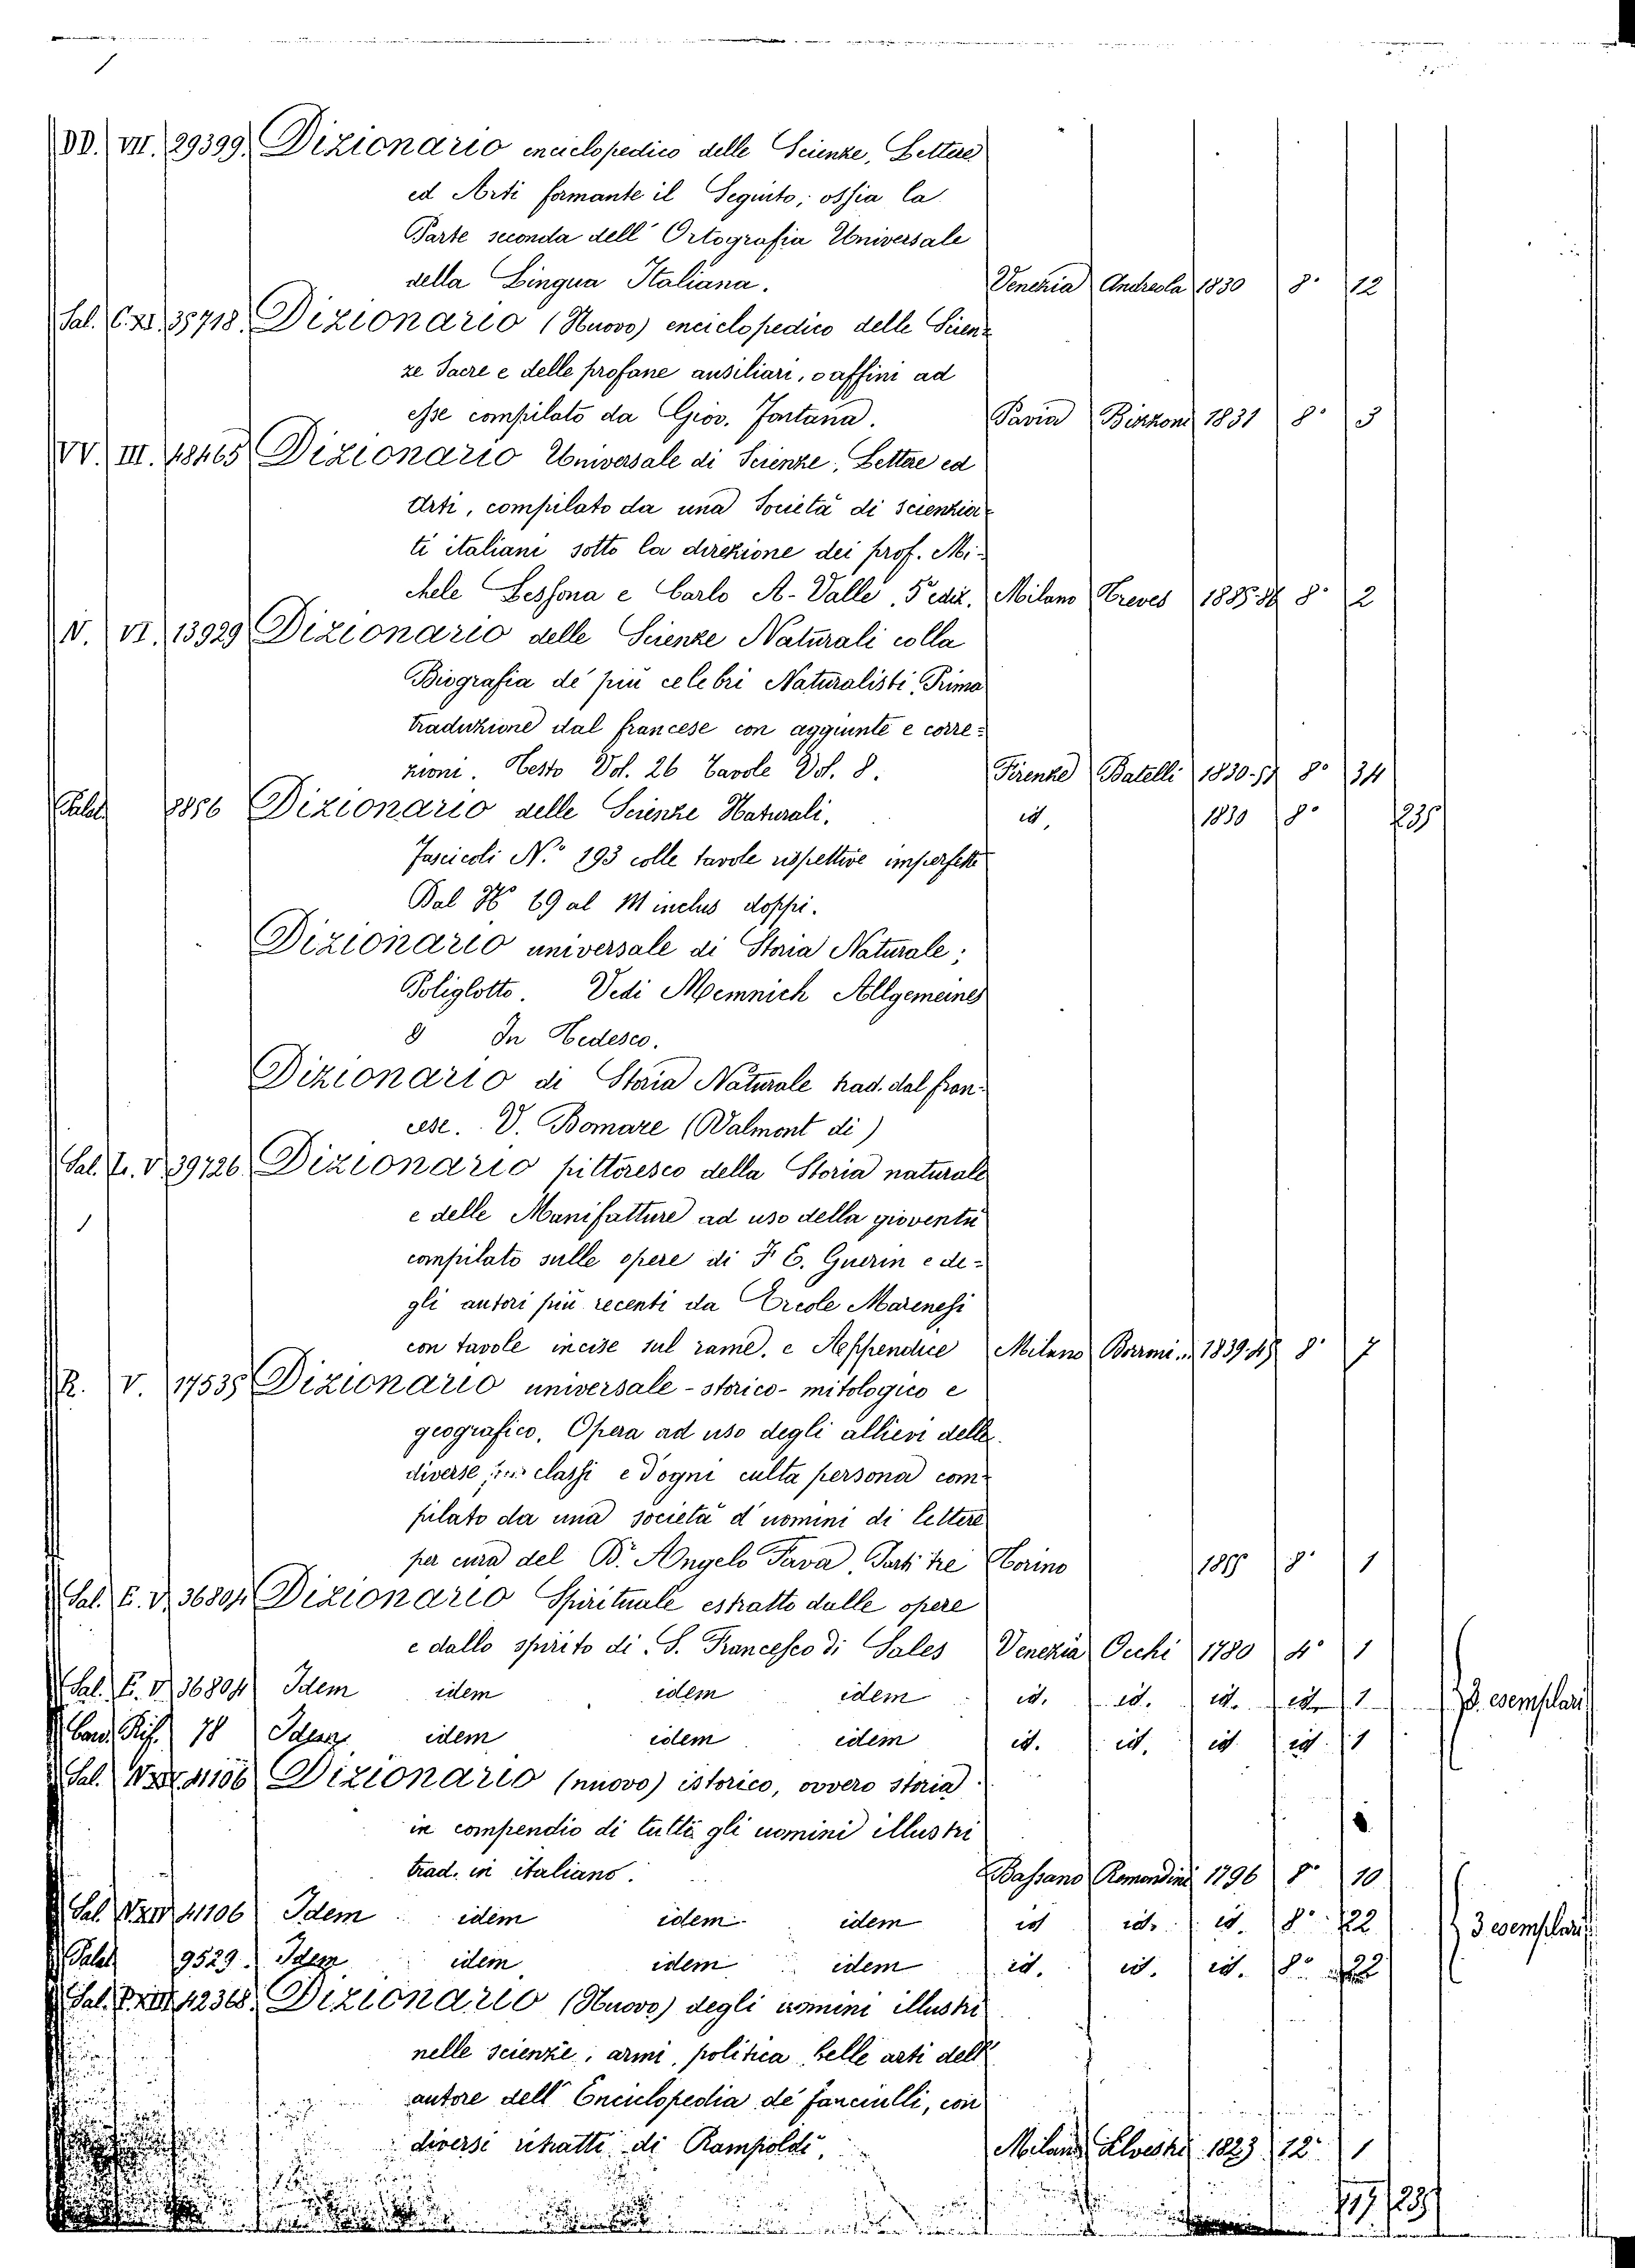 DD. VII. 29399. Dizionario enciclopedico delle Scienze, Lettere
ed Arti formante il Seguito; ossia la
Parte seconda dell' Ortografia Universale
della Lingua Italiana. Venezia Andreola 1830 8° 12
Sal. C. XI. 35718. Dizionario (Nuovo) enciclopedico delle Scien-
ze Sacre e delle profane ausiliari, o affini ad
esse compilato da Giov. Fontana. Pavia Bizzoni 1831 8° 3
VV. III. 48465 Dizionario Universale di Scienze, Lettere ed
Arti, compilato da una Società di scienzia-
ti italiani sotto la direzione dei prof. Mi-
chele Lessona e Carlo A-Valle, 5ª ediz. Milano Treves 8° 2
N. VI. 13929 Dizionario delle Scienze Naturali colla
Biografia de' più celebri Naturalisti, Prima
traduzione dal francese con aggiunte e corre=
zioni. Testo Vol. 26 Tavole Vol. 8. Firenze Batelli 8° 34
Palat. 8856 Dizionario delle Scienze Naturali. id. 1830 8° 235
Fascicoli N.° 193 colle tavole rispettive imperfette
Dal N° 69 al inclus doppi.
Dizionario universale di Storia Naturale;
Poliglotto. Vedi Memnich Allgemeines
In Tedesco.
Dizionario di Storia Naturale trad. dal fran-
cese. V. Bomare (Valmont di)
Sal. V. 39726 Dizionario pittoresco della Storia naturale
e delle Manifatture ad uso della gioventù
compilato sulle opere di F. E. Guerin e de=
gli autori più recenti da Ercole Marenesi
con tavole incise sul rame, e Appendice Milano 8° 7
R. V. 17535 Dizionario universale-storico-mitologico e
geografico. Opera ad uso degli allievi delle
diverse classi e d'ogni culta persona com-
pilato da una società d'uomini di lettere
per cura del D. Angelo Fava. Parti tre Torino 8° 1
Sal. E. V. 36804 Dizionario Spirituale estratto dalle opere
e dallo spirito di S. Francesco di Sales Venezia Occhi 1780 4° 1
Sal. E. V. 36804 Idem idem idem idem id. id. id. id. 1 3. esemplari
Rif. 78 Idem idem idem idem id. id. id. id. 1
Sal. 41106 Dizionario (nuovo) istorico, ovvero storia
in compendio di tutti gli uomini illustri
trad. in italiano. Bassano Remondini 1796 8° 10
Sal. 41106 Idem idem idem idem id id. id. 8° 22 3 esemplari
Palat 9529. Idem idem idem idem id. id. id. 8° 22
Sal. 42368. Dizionario (Nuovo) degli uomini illustri
nelle scienze, armi, politica, belle arti dell'
autore dell' Enciclopedia de' fanciulli, con
diversi ritratti di Rampoldi. Milano 1823 12° 1